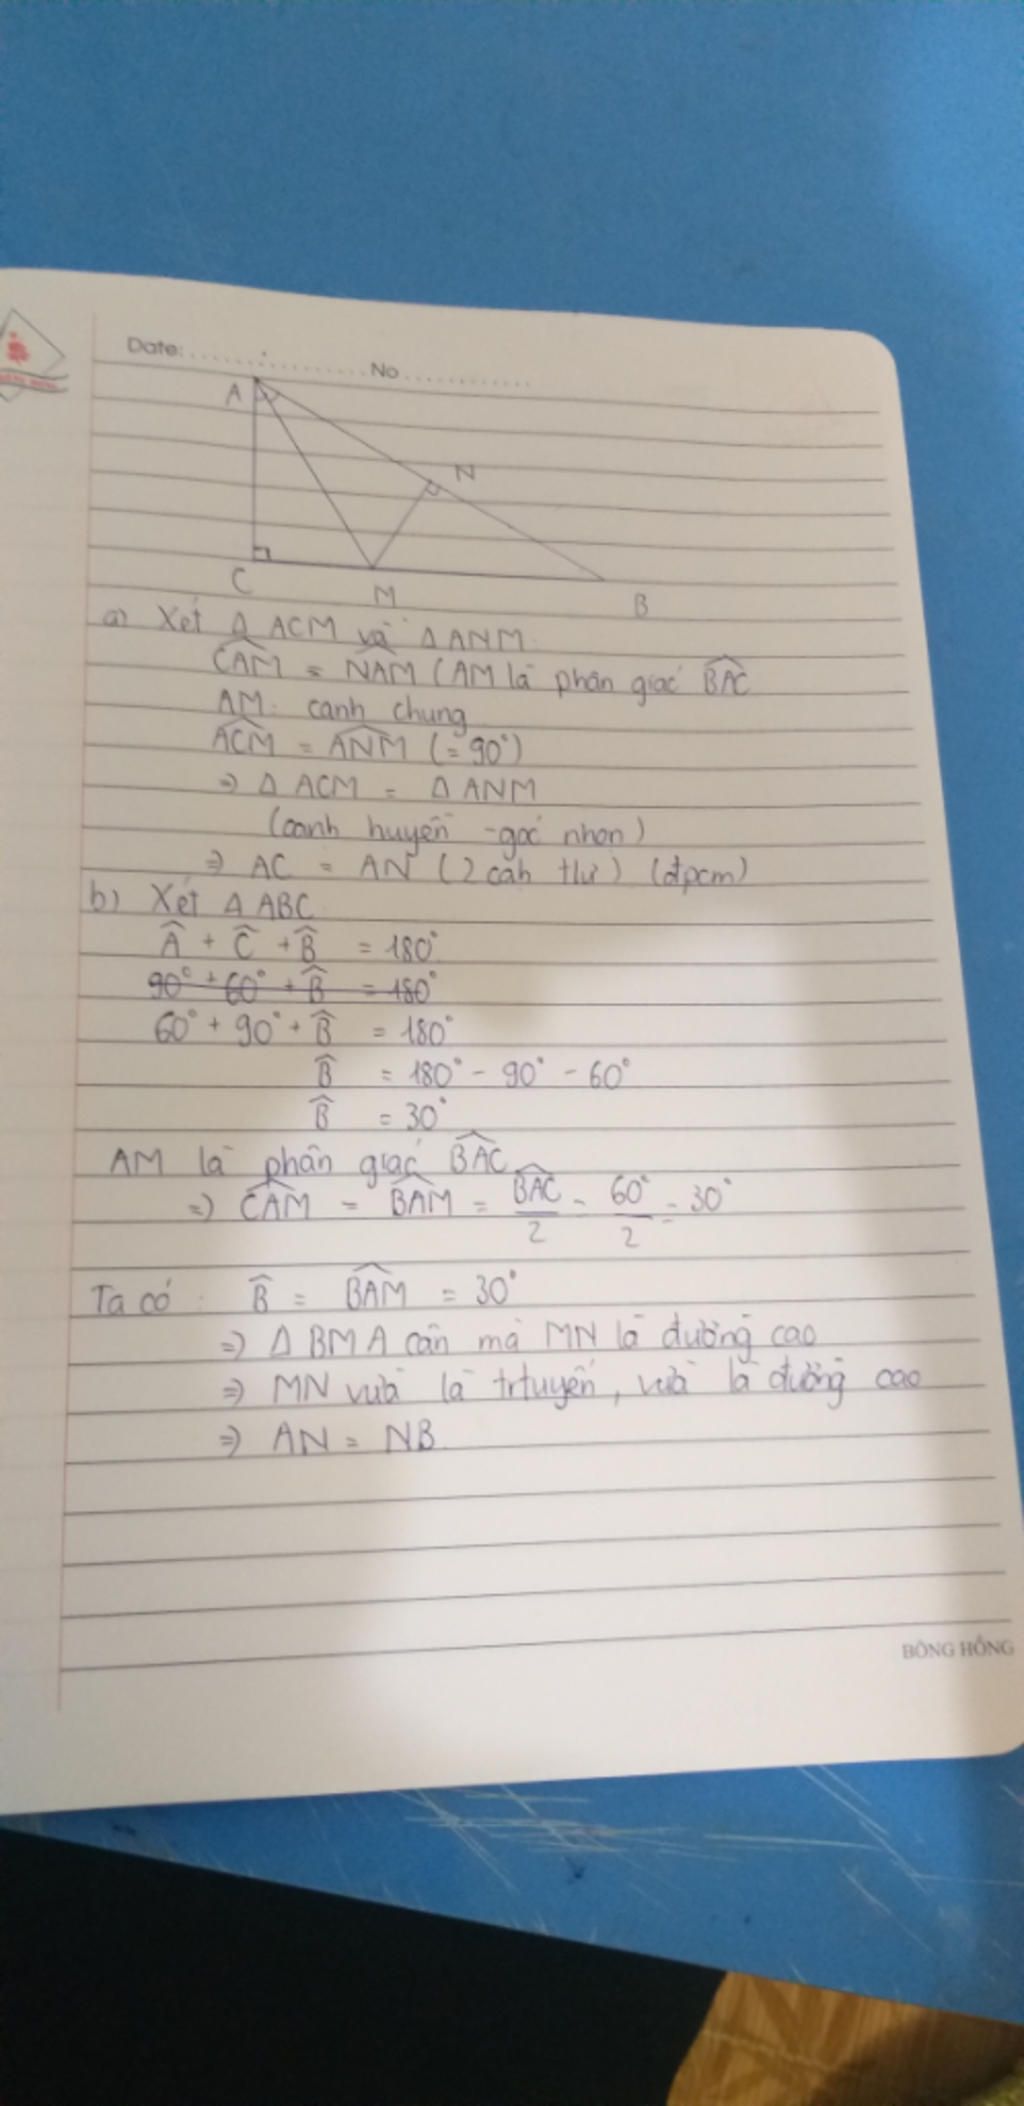 Date: ..................... No ..................
A
N
C
M
B
a) Xét Δ ACM và Δ ANM:
CAM̂ = NAM̂ (AM là phân giác BAĈ
AM: cạnh chung
ACM̂ = ANM̂ (= 90°)
=> Δ ACM = Δ ANM
(cạnh huyền - góc nhọn)
=> AC = AN (2 cah tlư) (đpcm)
b) Xét Δ ABC
Â + Ĉ + B̂ = 180°
90° + 60° + B̂ = 180°
60° + 90° + B̂ = 180°
B̂ = 180° - 90° - 60°
B̂ = 30°
AM là phân giác BAĈ
=> CAM̂ = BAM̂ = BAĈ/2 = 60°/2 = 30°
Ta có: B̂ = BAM̂ = 30°
=> Δ BMA cân mà MN là đường cao
=> MN vừa là trtuyến, vừa là đường cao
=> AN = NB
BÔNG HỒNG